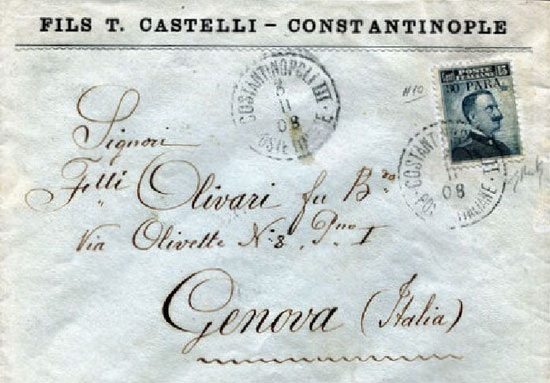 FILS T. CASTELLI – CONSTANTINOPLE
COSTANTINOPOLI III · E
11
08
15 POSTE ITALIANE
30 PARA
COSTANTIN III
08
ITALIANE
Signori
F.lli Olivari fu B.
Via Olivette N.º 8. P.no I
Genova (Italia)